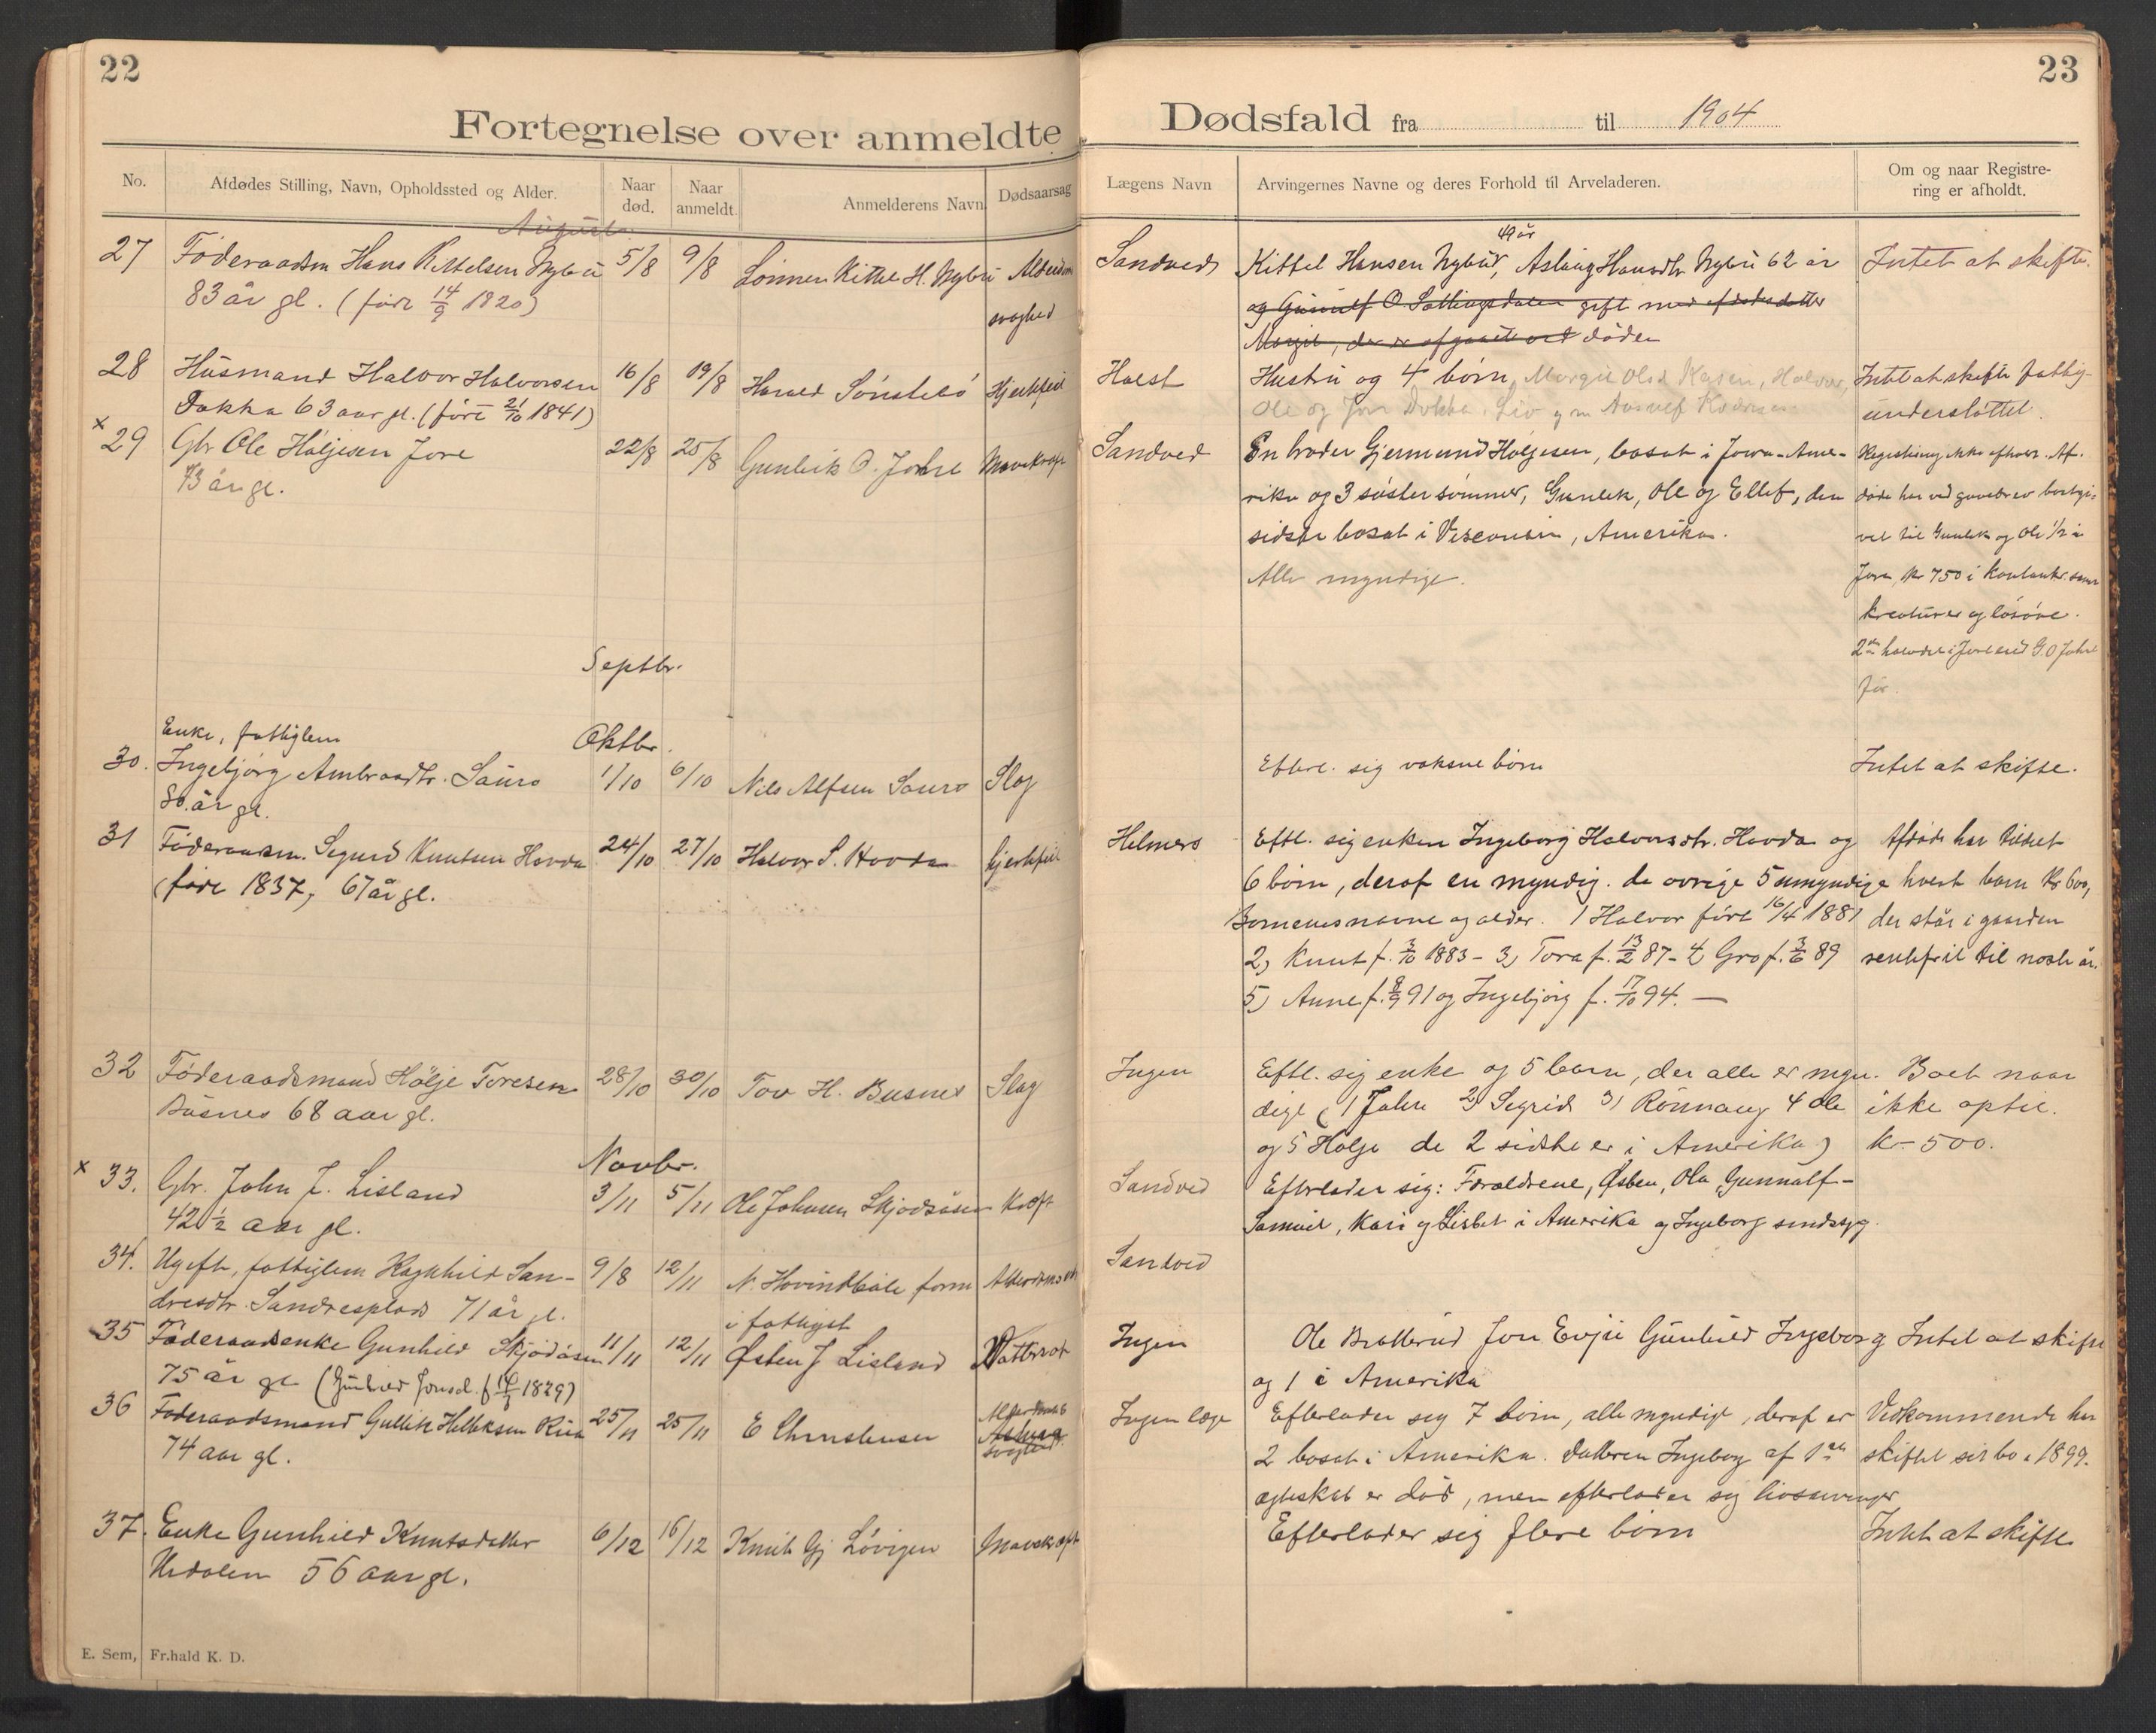 22
Fortegnelse over anmeldte
No.
Afdødes Stilling, Navn, Opholdssted og Alder.
Naar død.
Naar anmeldt.
Anmelderens Navn
Dødsaarsag
August
27 Føderaadsm Hans Kittelsen Nybu 5/8 9/8 Sønnen Kittel H. Nybu Alderdoms
83 år gl. (født 14/9 1820) svaghed
28 Husmand Halvor Halvorsen 16/8 19/8 Harald Sønstebö Hjertefeil
Dokka 63 aar gl. (født 21/10 1841)
x
29 Gbr Ole Høljesen Jore 22/8 25/8 Gunleik O. Johre Mavekræft
73 år gl.
Septbr.
Enke, fattiglem Oktbr.
30. Ingebjörg Ambrosdtr. Sauro 1/10 6/10 Nils Alfsen Sauro Slag
80 år gl.
31 Föderaadsm. Segurd Knutsen Hovda 24/10 27/10 Halvor S. Hovda hjertefeil
(født 1837, 67 år gl.
32 Föderaadsmand Hölje Toresen 28/10 30/10 Tov H. Busnes Slag
Busnes 68 aar gl.
Novbr.
x 33. Gbr. John J. Lisland 3/11 5/11 Ole Johnsen Skjodsåsen Kræft
42 1/2 aar gl.
34. Ugift, fattiglem Ragnhild San- 9/8 12/11 N. Hovindböle form Alderdomssv
dresdtr. Sandresplads 71 år gl. i fattigst
35 Føderaadsenke Gunhild Skjodåsen 11/11 12/11 Østen J Lisland Vattersot
75 år gl (Gunhild Jonsd. f 1829)
36 Føderaadsmand Gullik Helleksen Rua 25/11 25/11 E Christensen Alderdoms
74 aar gl. svaghed
37. Enke Gunhild Knutsdatter 6/12 16/12 Knut Gj Lövigen Mavekræft
Uvdalen 56 aar gl.
E. Sem, Fr.hald K. D.
23
Dødsfald fra til 1904
Lægens Navn
Arvingernes Navne og deres Forhold til Arveladeren.
Om og naar Registre-
ring er afholdt.
49 år
Sandved Kittel Hansen Nybu, Aslaug Hansdtr Nybu 62 år Intet at skifte.
og Gunnulf O Sattingsdalen gift med afdødes datter
Margit, der er afgaaet ved døden
Holst Hustru og 4 börn, Margit Olsd, Halvor, Intet at skifte fattig-
Ole og Jon Dokka, Liv g m understøttet.
Sandved En broder Gjermund Høljesen, bosat i Jowa-Ame- Registrering ikke afholdt. Af-
rika og 3 søstersønner, Gunlek, Ole og Ellef, den døde har ved gavebrev bortgi-
sidste bosat i Visconsin, Amerika. vet til Gunlek og Ole 1/2 i
Alle myndige. Jore, kr 750 i kontanter samt
kreaturer og løsøre.
2den halvdel i Jore eied G. O Johre
før.
Efterl. sig voksne börn Intet at skifte.
Helmers Eftl. sig enken Ingeborg Halvorsdtr. Hovda og Afdøde har tildelt
6 börn, deraf en myndig. de øvrige 5 umyndige hvert barn Kr 600,
Børnenes navne og alder. 1 Halvor født 16/4 1881 der står i gaarden
2) Knut f. 3/10 1883 - 3) Tora f. 13/2 87 - 4 Gro f. 3/6 89 rentefrit til næste år.
5) Anne f. 8/9 91 og Ingebjörg f. 17/10 94. —
Ingen Eftl. sig enke og 5 barn, der alle er myn- Boet naar
dige (1 John 2) Segrid 3) Rönnaug 4 Ole ikke optil.
og 5 Holje de 2 sidste er i Amerika) kr 500.
Sandved Efterlader sig: Forældrene, Østen, Ola, Gunnulf -
Samuel, Kari og Lisbet i Amerika og Ingeborg sindssyg.
Sandved
Ingen Ole Bratterud Jon Evju Gunhild Ingeborg Intet at skifte
og 1 i Amerika
Ingen læge Efterlader sig 7 börn, alle myndige, deraf er Vedkommende har
2 bosat i Amerika. Datteren Ingeborg af 1ste skiftet sit bo i 1899.
ægteskab er död, men efterlader sig livsarvinger
Efterlader sig flere börn Intet at skifte